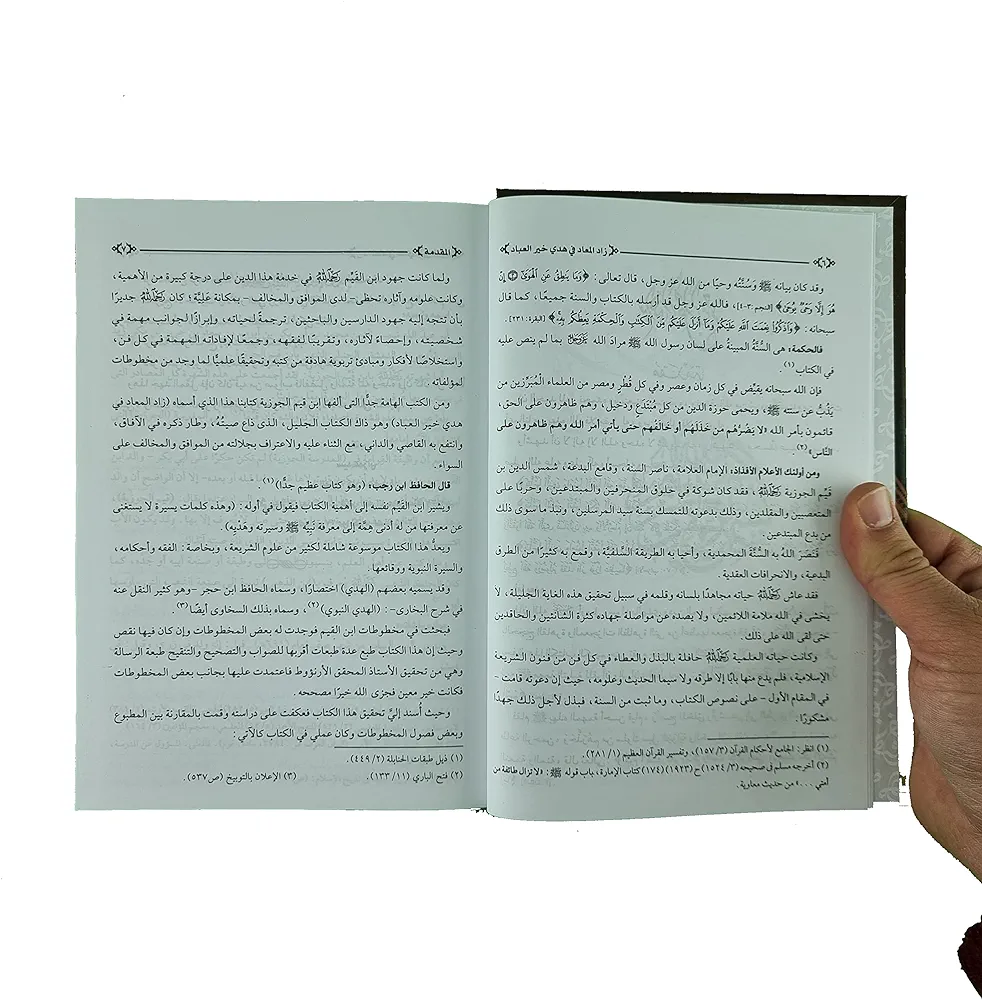 زاد المعاد في هدي خير العباد
٦
وقد كان بيانه ﷺ وسُنَّتُه وحيًا من الله عز وجل، قال تعالى: ﴿وَمَا يَنطِقُ عَنِ ٱلْهَوَىٰٓ ۝٣ إِنْ
هُوَ إِلَّا وَحْىٌ يُوحَىٰ﴾ [النجم:٣-٤]، فالله عز وجل قد أرسله بالكتاب والسنة جميعًا، كما قال
سبحانه: ﴿وَٱذْكُرُوا۟ نِعْمَتَ ٱللَّهِ عَلَيْكُمْ وَمَآ أَنزَلَ عَلَيْكُم مِّنَ ٱلْكِتَٰبِ وَٱلْحِكْمَةِ يَعِظُكُم بِهِۦ﴾ [البقرة: ٢٣١].
فالحكمة: هى السُّنَّة المبينةُ على لسان رسول الله ﷺ مرادَ الله بما لم ينص عليه
في الكتاب (١).
فإن الله سبحانه يقيِّض في كل زمان وعصر وفي كل قُطْرٍ ومصر من العلماء المُبَرِّزين من
يَذُبُّ عن سنته ﷺ، ويحمى حوزة الدين من كل مُبْتَدَعٍ ودخيل، وهم ظاهرون على الحق،
قائمون بأمر الله «لا يَضُرُّهُم مَن خَذَلَهُم أو خَالَفَهم حتى يأتي أمر الله وهم ظاهرون على
النَّاس» (٢).
ومن أولئك الأعلام الأفذاذ: الإمام العلامة، ناصر السنة، وقامع البدعة، شمس الدين بن
قيِّم الجوزية رَحِمَهُ اللَّهُ، فقد كان شوكة في حلوق المنحرفين والمبتدعين، وحربًا على
المتعصبين والمقلدين، وذلك بدعوته للتمسك بسنة سيد المرسلين، ونبذ ما سوى ذلك
من بدع المبتدعين.
فَنَصَرَ اللهُ به السُّنَّة المحمدية، وأحيا به الطريقة السَّلفيَّة، وقمع به كثيرًا من الطرق
البدعية، والانحرافات العقدية.
فقد عاش رَحِمَهُ اللَّهُ حياته مجاهدًا بلسانه وقلمه في سبيل تحقيق هذه الغاية الجليلة، لا
يخشى في الله ملامة اللائمين، ولا يصده عن مواصلة جهاده كثرة الشانئين والحاقدين
حتى لقى الله على ذلك.
وكانت حياته العلمية رَحِمَهُ اللَّهُ حافلة بالبذل والعطاء في كل فن من فنون الشريعة
الإسلامية، فلم يدع منها بابًا إلا طرقه ولا سيما الحديث وعلومه، حيث إن دعوته قامت -
في المقام الأول - على نصوص الكتاب، وما ثبت من السنة، فبذل لأجل ذلك جهدًا
مشكورًا.
(١) انظر: الجامع لأحكام القرآن (٣/ ١٥٧)، وتفسير القرآن العظيم (١/ ٢٨١).
(٢) أخرجه مسلم في صحيحه (٣/ ١٥٢٤) ح (١٩٢٣) (١٧٤) كتاب الإمارة، باب قوله ﷺ: «لا تزال طائفة من
أمتي ...» من حديث معاوية.
المقدمة
٧
ولما كانت جهود ابن القَيِّم رَحِمَهُ اللَّهُ في خدمة هذا الدين على درجة كبيرة من الأهمية،
وكانت علومه وآثاره تحظى -لدى الموافق والمخالف - بمكانة عَلِيَّة؛ كان رَحِمَهُ اللَّهُ جديرًا
بأن تتجه إليه جهود الدارسين والباحثين، ترجمةً لحياته، وإبرازًا لجوانب مهمة في
شخصيته، وإحصاءً لآثاره، وتقريبًا لفقهه، وجمعًا لإفاداته المهمة في كل فن،
واستخلاصًا لأفكار ومبادئ تربوية هادفة من كتبه وتحقيقًا علميًّا لما وجد من مخطوطات
لمؤلفاته.
ومن الكتب الهامة جدًّا التى ألفها ابن قيم الجوزية كتابنا هذا الذي أسماه (زاد المعاد في
هدي خير العباد) وهو ذاك الكتاب الجليل، الذى ذاع صيتُهُ، وطار ذكره في الآفاق،
وانتفع به القاصي والداني، مع الثناء عليه والاعتراف بجلالته من الموافق والمخالف على
السواء.
قال الحافظ ابن رجب: (وهو كتاب عظيم جدًّا)(١).
ويشير ابن القَيِّم نفسه إلى أهمية الكتاب فيقول في أوله: (وهذه كلمات يسيرة لا يستغنى
عن معرفتها من له أدنى هِمَّة إلى معرفة نَبِيِّه ﷺ وسيرته وهَدْيِه).
ويعدُّ هذا الكتاب موسوعة شاملة لكثير من علوم الشريعة، وبخاصة: الفقه وأحكامه،
والسيرة النبوية ووقائعها.
وقد يسميه بعضهم (الهدي) اختصارًا، وسماه الحافظ ابن حجر -وهو كثير النقل عنه
في شرح البخارى-: (الهدي النبوي)(٢)، وسماه بذلك السخاوى أيضًا(٣).
فبحثت في مخطوطات ابن القيم فوجدت له بعض المخطوطات وإن كان فيها نقص
وحيث إن هذا الكتاب طبع عدة طبعات أقربها للصواب والتصحيح والتنقيح طبعة الرسالة
وهي من تحقيق الأستاذ المحقق الأرنؤوط فاعتمدت عليها بجانب بعض المخطوطات
فكانت خير معين فجزى الله خيرًا مصححه.
وحيث أُسند إليَّ تحقيق هذا الكتاب فعكفت على دراسته وقمت بالمقارنة بين المطبوع
وبعض فصول المخطوطات وكان عملي في الكتاب كالآتي:
(١) ذيل طبقات الحنابلة (٢/ ٤٤٩).
(٢) فتح الباري (١١/ ١٣٣). (٣) الإعلان بالتوبيخ (ص٥٣٧).